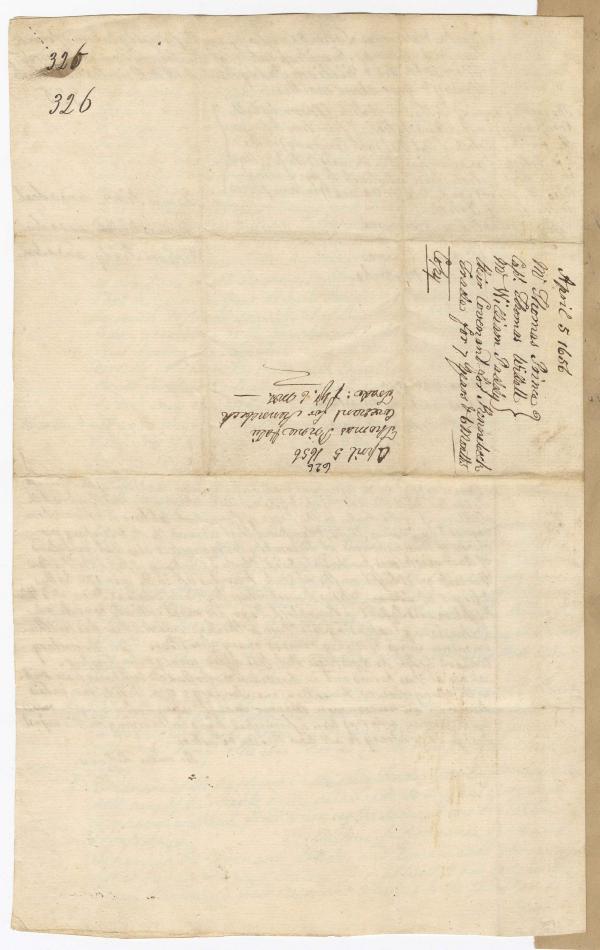 326
326
April 5 1656
Mr Thomas Prince
Capt Thomas Willett
Mr William Paddy
their Covenant for Kennebeck
Trade for 7 Years & 6 Months
Copy
626
April 5 1656
Thomas Prince
Covenant for Kennebeck
Trade: 7 yr: 6 mo: